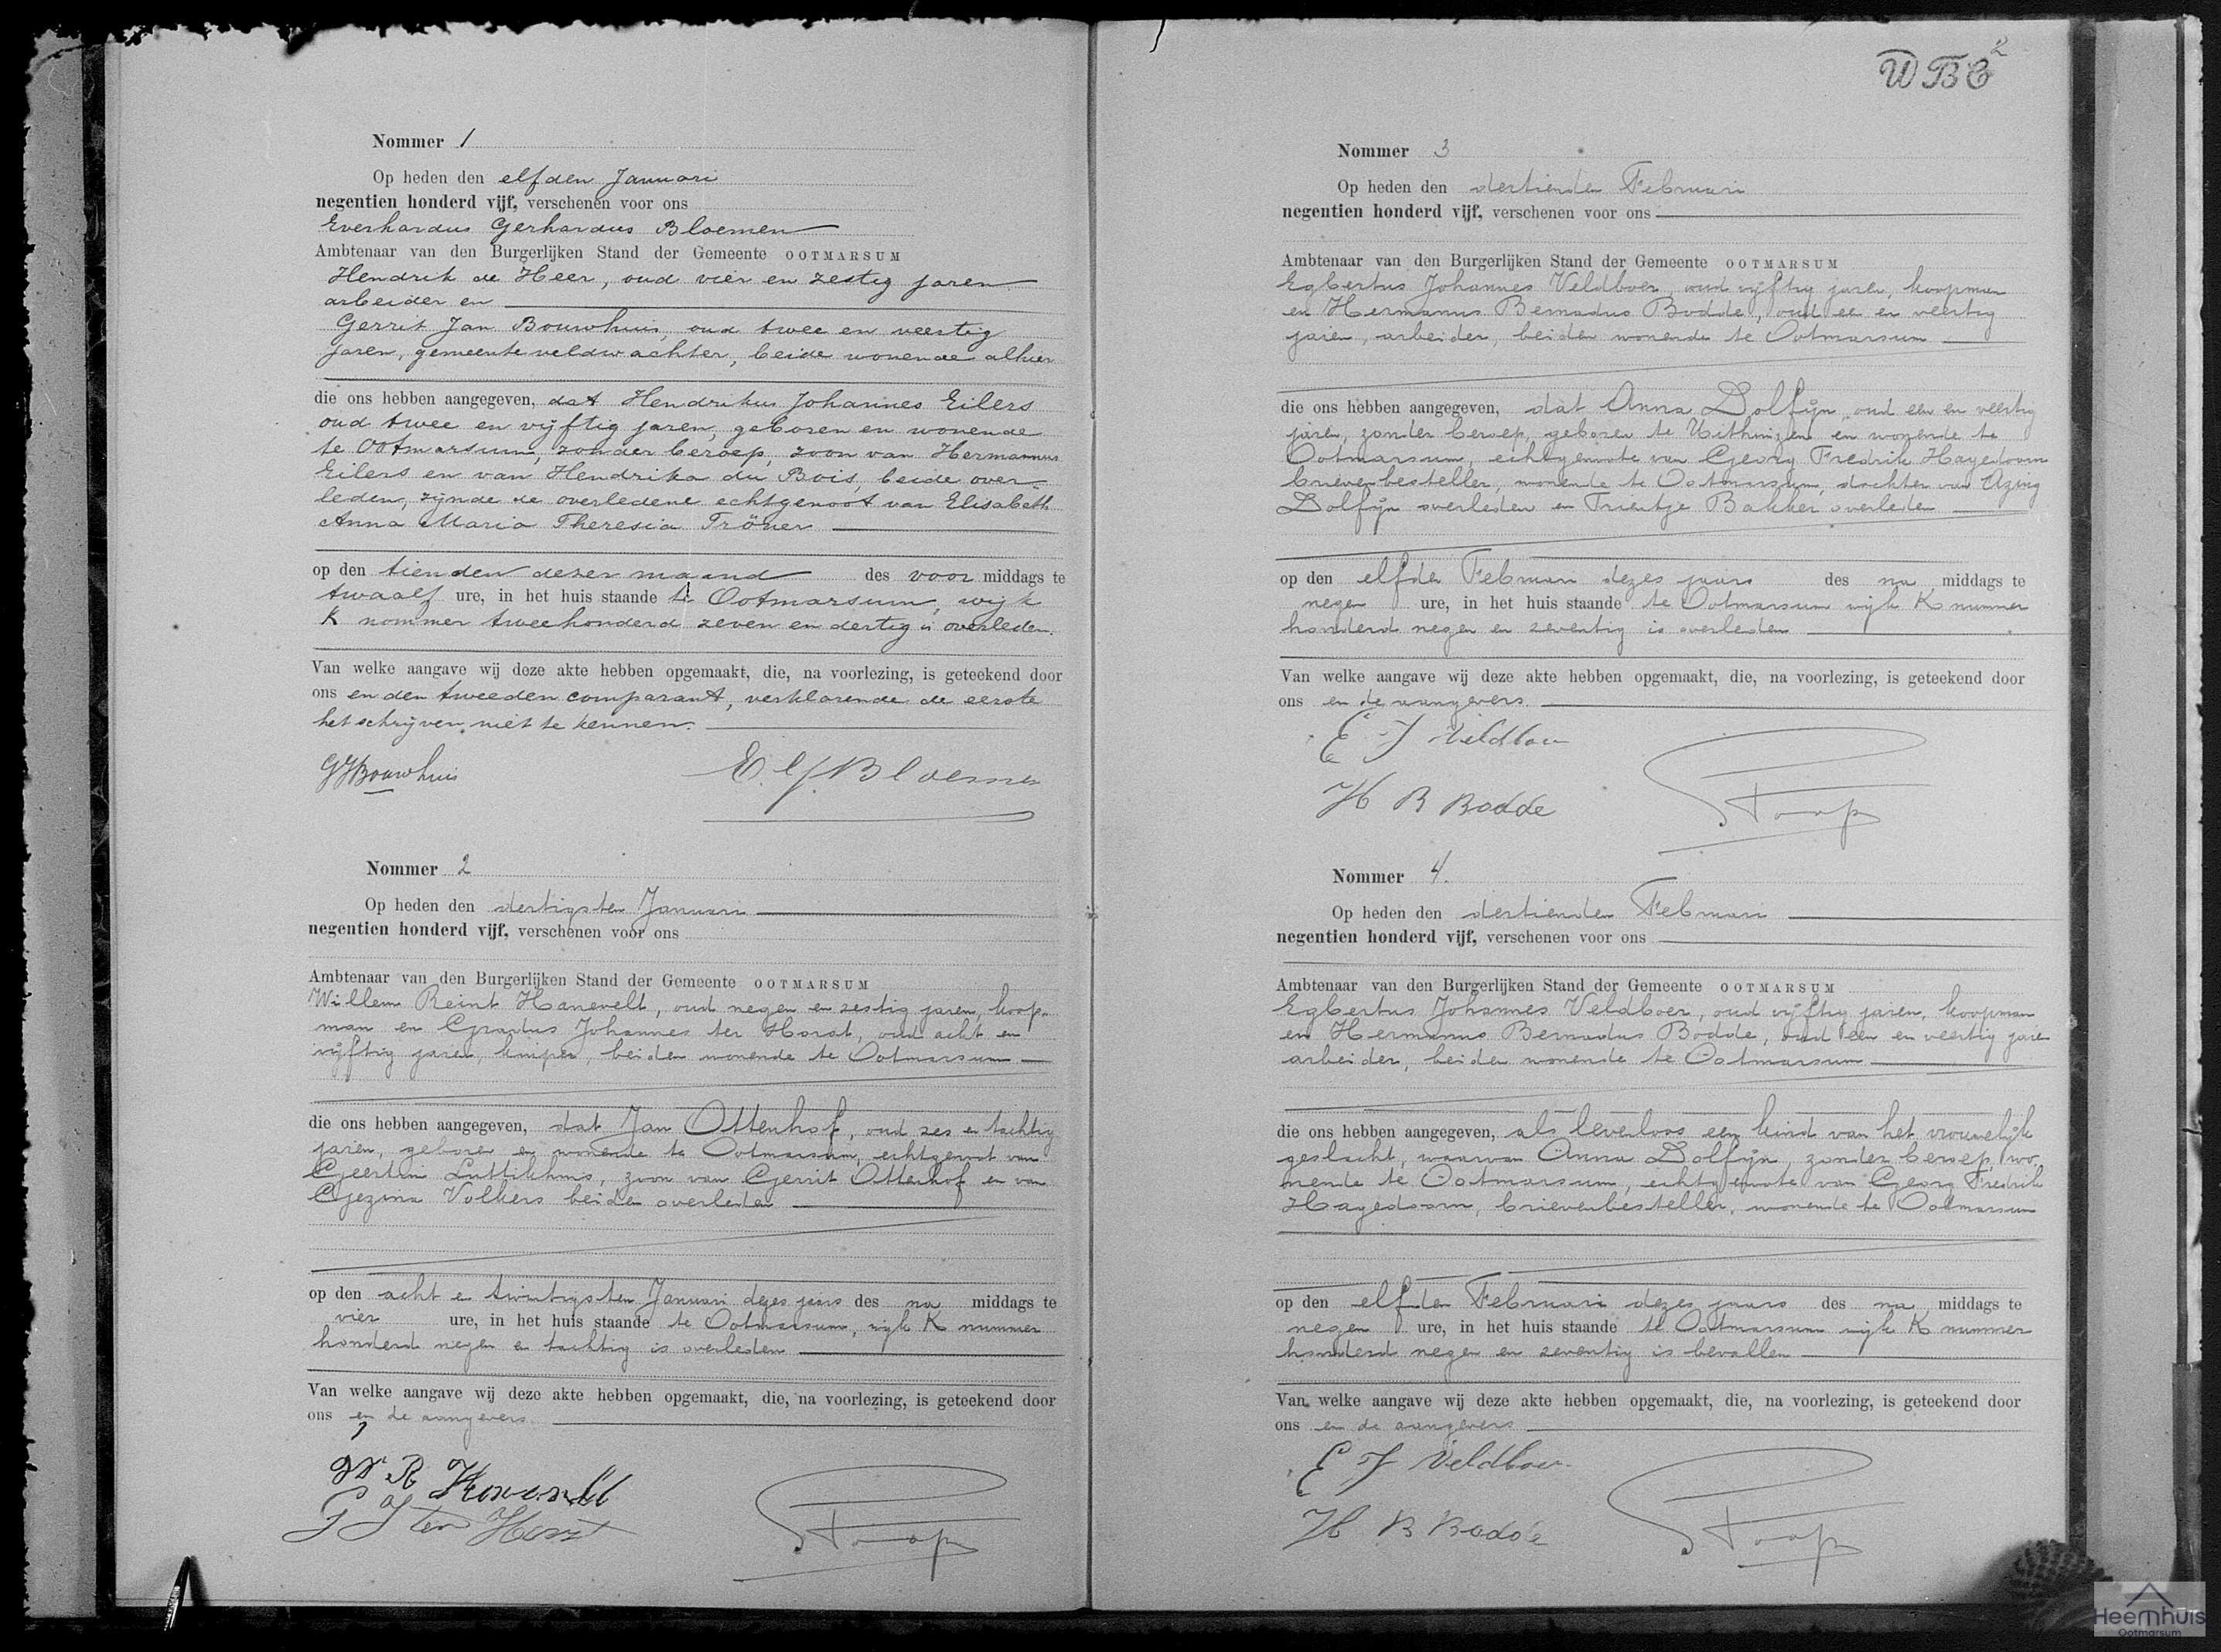 Nommer 1
Op heden den elfden Januari
negentien honderd vijf, verschenen voor ons
Everhardus Gerhardus Bloemen
Ambtenaar van den Burgerlijken Stand der Gemeente OOTMARSUM
Hendrik de Heer, oud vier en zestig jaren
arbeider en
Gerrit Jan Bouwhuis, oud twee en veertig
jaren, gemeente veldwachter, beide wonende alhier
die ons hebben aangegeven, dat Hendrikus Johannes Eilers
oud twee en vijftig jaren, geboren en wonende
te Ootmarsum, zonder beroep, zoon van Hermannus
Eilers en van Hendrika du Bois, beide over-
leden, zijnde de overledene echtgenoot van Elisabeth
Anna Maria Theresia Tröner
op den tienden dezer maand des voor middags te
twaalf ure, in het huis staande te Ootmarsum, wijk
K nommer tweehonderd zeven en dertig is overleden.
Van welke aangave wij deze akte hebben opgemaakt, die, na voorlezing, is geteekend door
ons en den tweeden comparant, verklarende de eerste
het schrijven niet te kennen.
GJBouwhuis E.G.Bloemen
Nommer 2
Op heden den dertigsten Januari
negentien honderd vijf, verschenen voor ons
Ambtenaar van den Burgerlijken Stand der Gemeente OOTMARSUM
Willem Reint Hanevelt, oud negen en zestig jaren, koop-
man en Gradus Johannes ter Horst, oud acht en
vijftig jaren, kuiper, beiden wonende te Ootmarsum
die ons hebben aangegeven, dat Jan Ottenhof, oud zes en tachtig
jaren, geboren en wonende te Ootmarsum, echtgenoot van
Geertrui Luttikhuis, zoon van Gerrit Ottenhof en van
Gezina Volkers beiden overleden
op den acht en twintigsten Januari dezes jaars des na middags te
vier ure, in het huis staande te Ootmarsum, wijk K nummer
honderd negen en tachtig is overleden
Van welke aangave wij deze akte hebben opgemaakt, die, na voorlezing, is geteekend door
ons en de aangevers.
W R Hanevelt
G J ter Horst
WBC 2
Nommer 3
Op heden den dertienden Februari
negentien honderd vijf, verschenen voor ons
Ambtenaar van den Burgerlijken Stand der Gemeente OOTMARSUM
Egbertus Johannes Veldboer, oud vijftig jaren, koopman
en Hermanus Bernadus Bodde, oud een en veertig
jaren, arbeider, beiden wonende te Ootmarsum
die ons hebben aangegeven, dat Anna Dolfijn, oud een en veertig
jaren, zonder beroep, geboren te Uithuizen en wonende te
Ootmarsum, echtgenoote van Georg Fredrik Hagedoorn
brievenbesteller, wonende te Ootmarsum, dochter van
Dolfijn overleden en Trientje Bakker overleden
op den elfden Februari dezes jaars des na middags te
negen ure, in het huis staande te Ootmarsum wijk K nummer
honderd negen en zeventig is overleden
Van welke aangave wij deze akte hebben opgemaakt, die, na voorlezing, is geteekend door
ons en de aangevers.
E J Veldboer
H B Bodde
Nommer 4.
Op heden den dertienden Februari
negentien honderd vijf, verschenen voor ons
Ambtenaar van den Burgerlijken Stand der Gemeente OOTMARSUM
Egbertus Johannes Veldboer, oud vijftig jaren, koopman
en Hermanus Bernadus Bodde, oud een en veertig jaren
arbeider, beiden wonende te Ootmarsum
die ons hebben aangegeven, als levenloos een kind van het vrouwelijk
geslacht, waarvan Anna Dolfijn, zonder beroep, wo
nende te Ootmarsum, echtgenoote van Georg Fredrik
Hagedoorn, brievenbesteller, wonende te Ootmarsum
op den elfden Februari dezes jaars des na middags te
negen ure, in het huis staande te Ootmarsum wijk K nummer
honderd negen en zeventig is bevallen
Van welke aangave wij deze akte hebben opgemaakt, die, na voorlezing, is geteekend door
ons en de aangevers
E J Veldboer
H B Bodde
Heemhuis
Ootmarsum